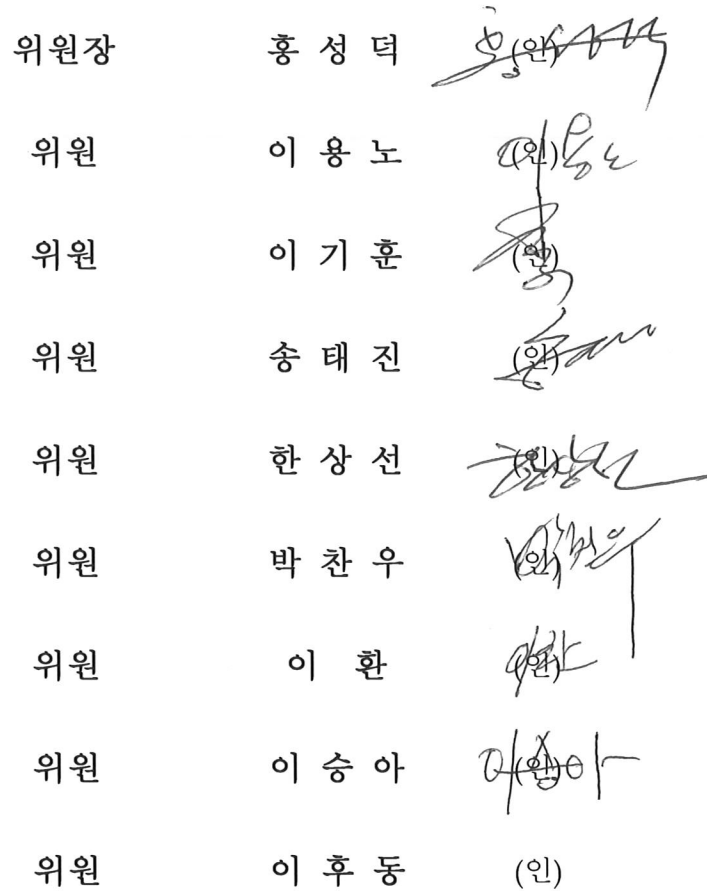 위원장 홍 성 덕 (인)
위원 이 용 노 (인) 이용노
위원 이 기 훈 (인)
위원 송 태 진 (인)
위원 한 상 선 (인) 한상선
위원 박 찬 우 (인)
위원 이 환 (인)
위원 이 승 아 (인) 이승아
위원 이 후 동 (인)